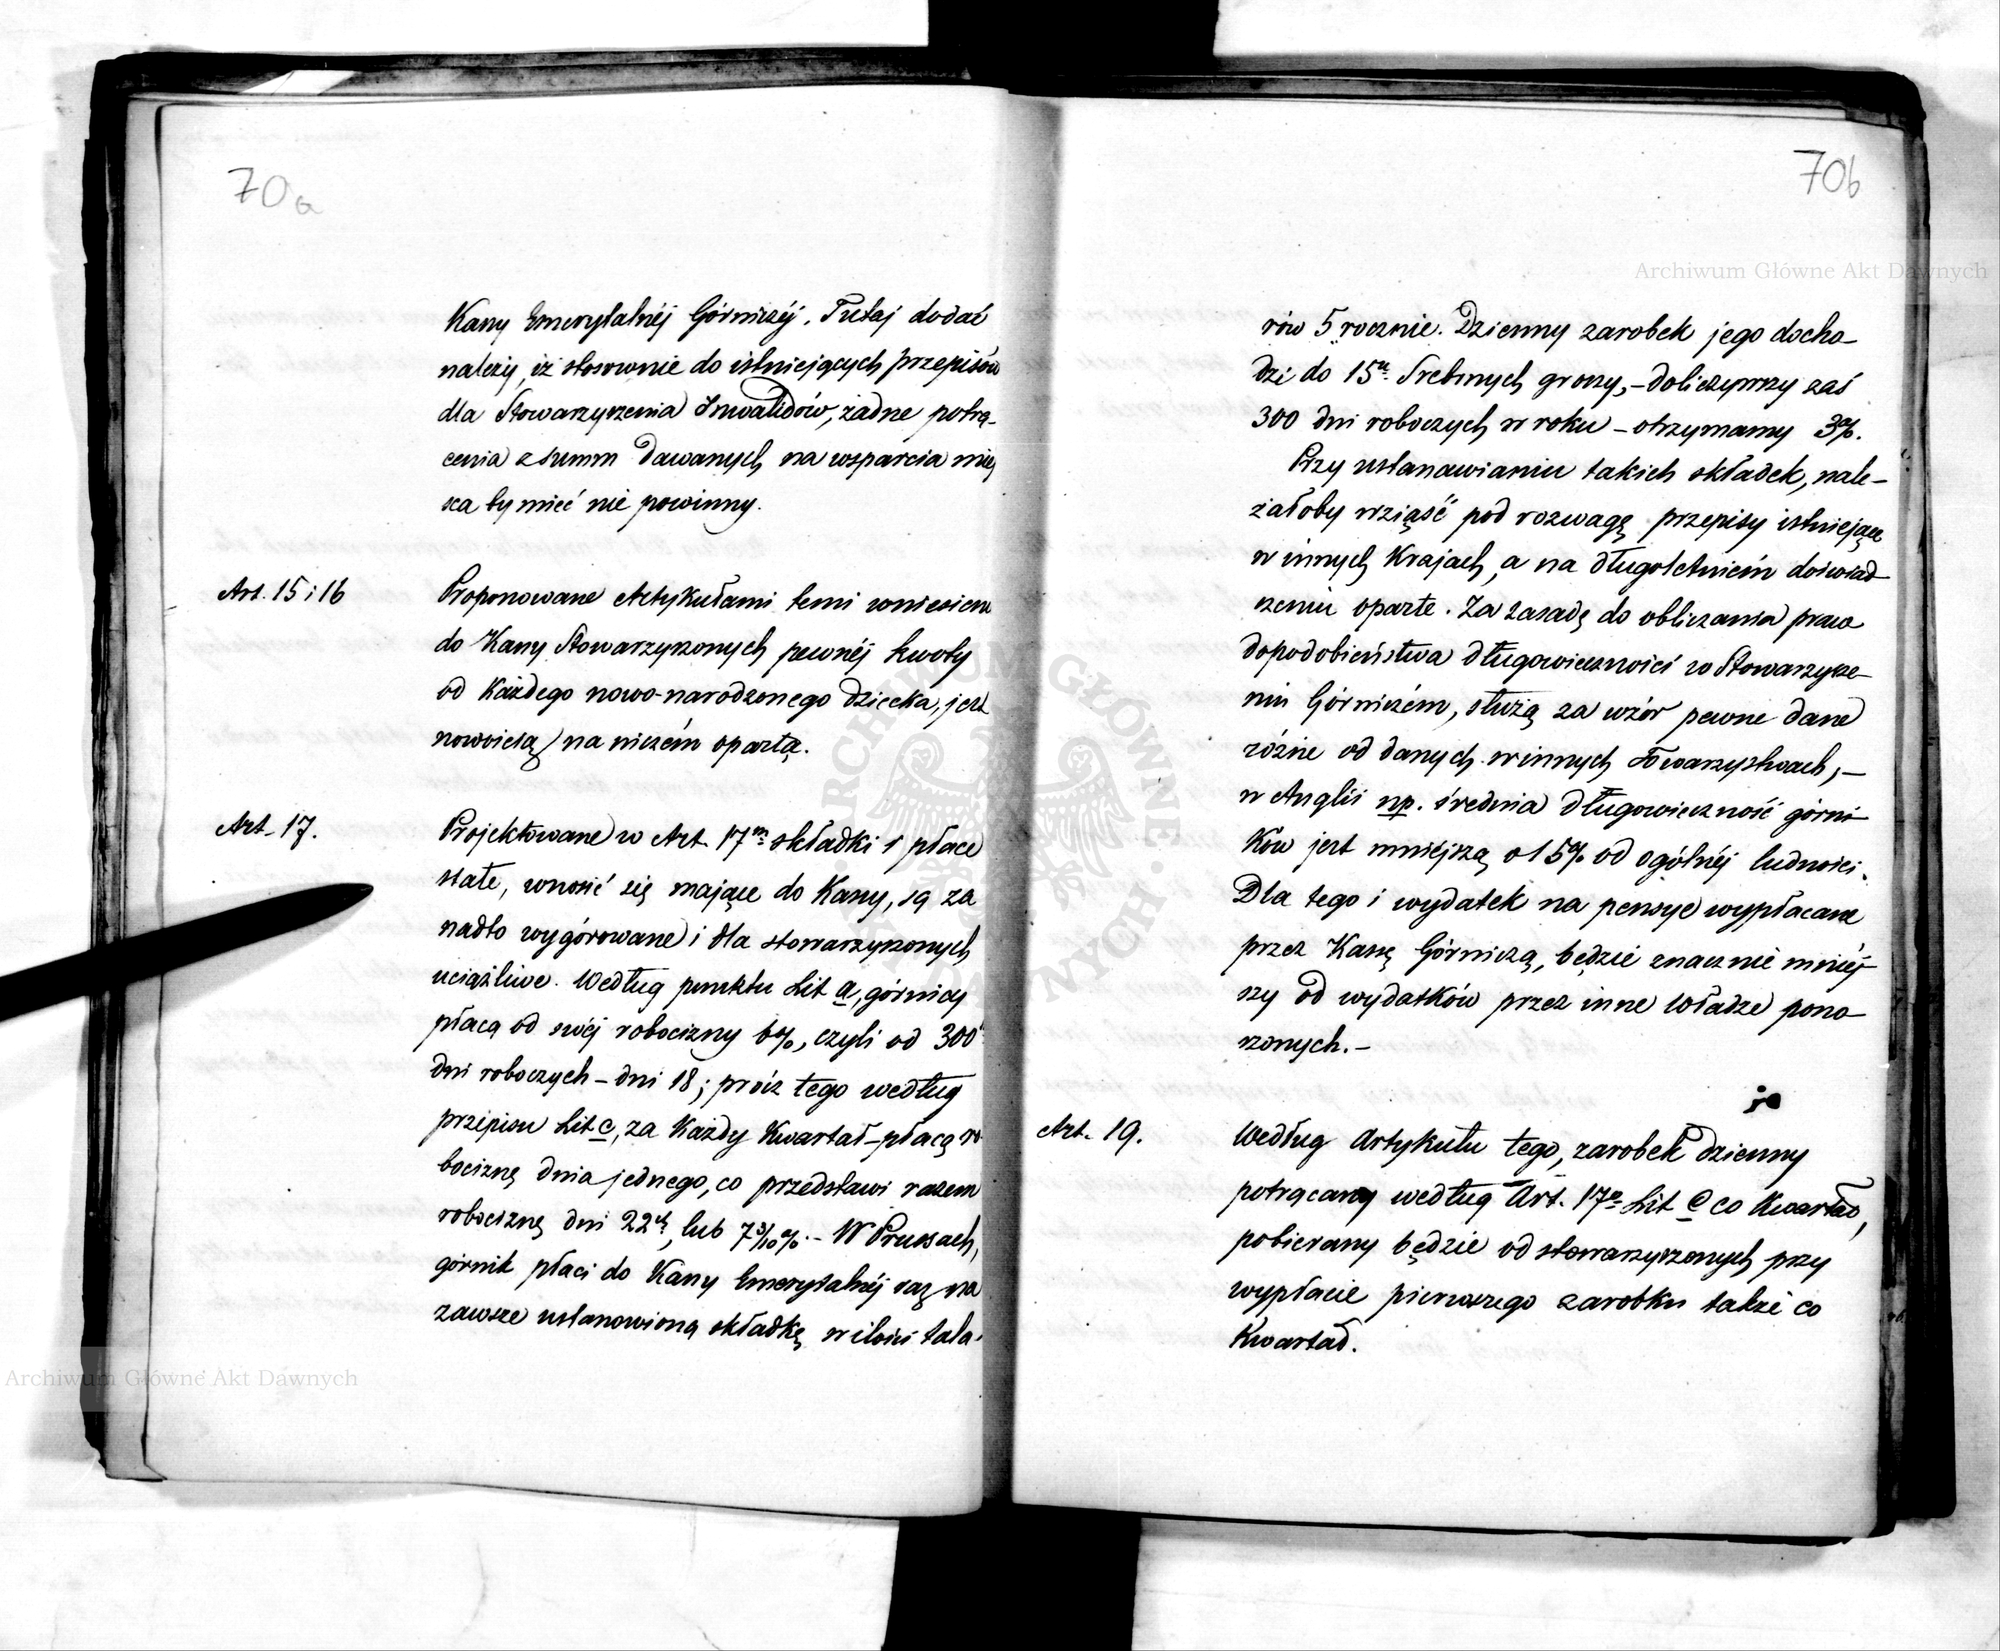 70a
Kassy Emerytalnéj Górniczéj. Tutaj dodać
należy, iż stosownie do istniejących przepisów
dla Stowarzyszenia Inwalidów, żadne potrą-
cenia z summ dawanych na wsparcia miej
sca by mieć nie powinny.
Art. 15 i 16
Proponowane Artykułami temi wniesienie
do Kassy Stowarzyszonych pewnéj kwoty
od każdego nowo-narodzonego dziecka, jest
nowością na niczém opartą.
Art. 17.
Projektowane w Art. 17m składki i płace
stałe, wnosić się mające do Kassy, są za
nadto wygórowane i dla stowarzyszonych
uciążliwe. Według punktu Lit a, górnicy
płacą od swéj robocizny 6%, czyli od 300
dni roboczych – dni 18; prócz tego według
przepisu Lit c, za każdy Kwartał – płacą ro
bociznę dnia jednego, co przedstawi razem
robociznę dni 22ch, lub 7 3/10 %. – W Prusach,
górnik płaci do Kassy Emerytalnéj raz na
zawsze ustanowioną składkę w ilości tala-
70b
rów 5 rocznie. Dzienny zarobek jego docho-
dzi do 15u Srebrnych groszy, – doliczywszy zaś
300 dni roboczych w roku – otrzymamy 3%.
Przy ustanawianiu takich składek, nale-
żałoby wziąść pod rozwagę przepisy istniejące
w innych Krajach, a na długoletniém doświad
czeniu oparte. Za zasadę do obliczania praw
dopodobieństwa długowieczności w Stowarzysze-
niu Górniczém, służą za wzór pewne dane
różne od danych w innych Towarzystwach, –
w Anglii np. średnia długowieczność górni-
ków jest mniejszą o 15% od ogólnéj ludności.
Dla tego i wydatek na pensye wypłacane
przez Kassę Górniczą, będzie znacznie mniéj-
szy od wydatków przez inne Władze pono-
szonych. –
Art. 19.
Według Artykułu tego, zarobek dzienny
potrącany według Art. 17o Lit C co Kwartał,
pobierany będzie od stowarzyszonych przy
wypłacie pierwszego zarobku także co
Kwartał.
Archiwum Główne Akt Dawnych
Archiwum Główne Akt Dawnych
ARCHIWUM GŁÓWNE